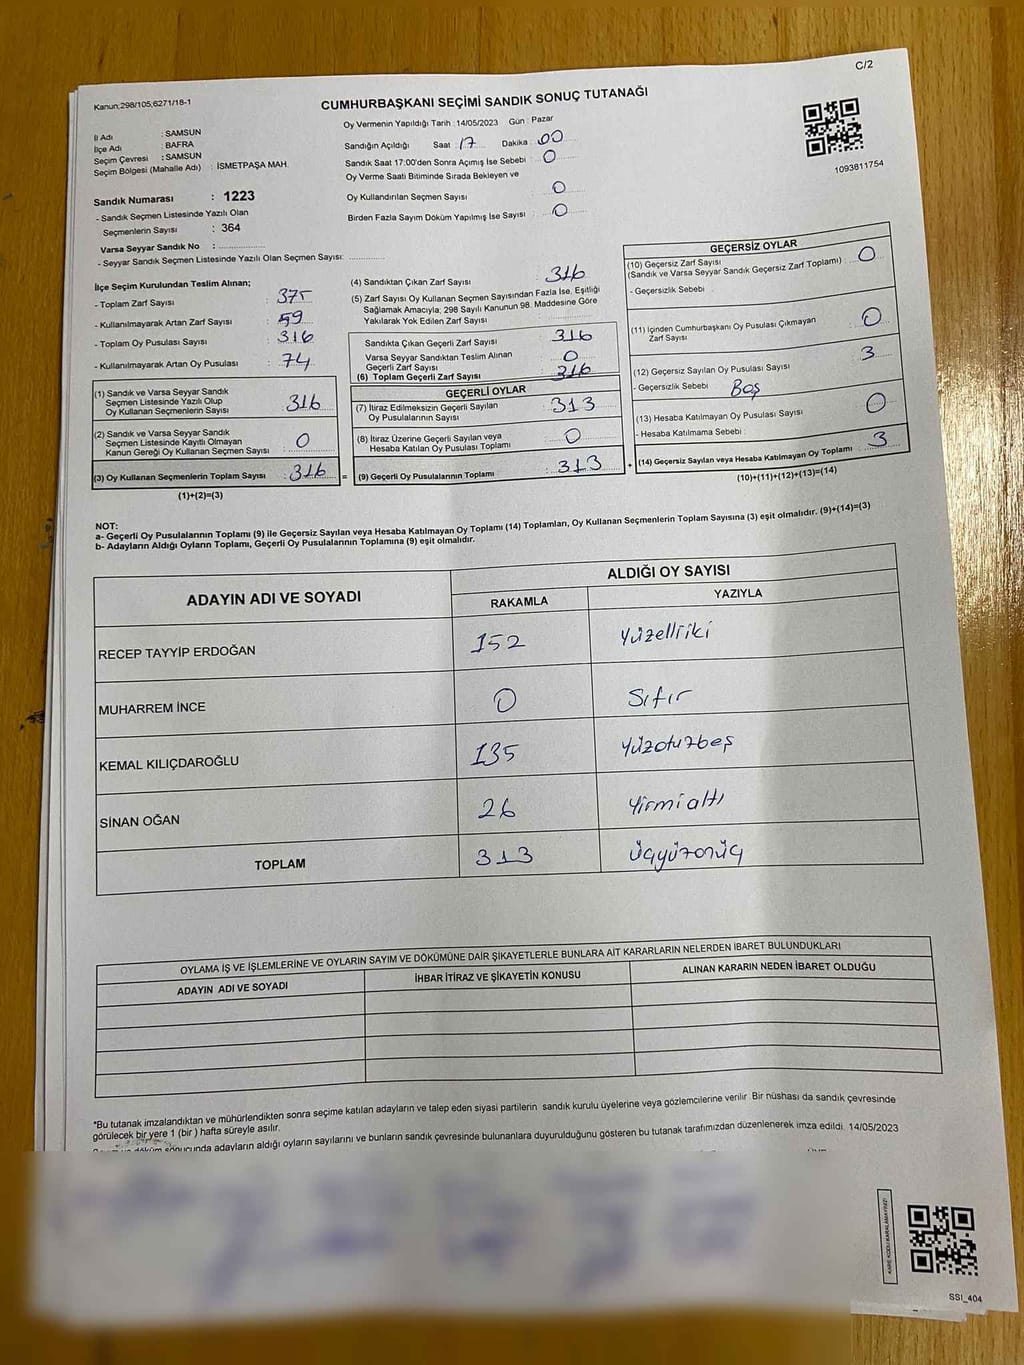 C/2
Kanun:298/105;6271/18-1
CUMHURBAŞKANI SEÇİMİ SANDIK SONUÇ TUTANAĞI
İl Adı : SAMSUN
İlçe Adı : BAFRA
Seçim Çevresi : SAMSUN
Seçim Bölgesi (Mahalle Adı) : İSMETPAŞA MAH.
Sandık Numarası : 1223
- Sandık Seçmen Listesinde Yazılı Olan
Seçmenlerin Sayısı : 364
Varsa Seyyar Sandık No :
- Seyyar Sandık Seçmen Listesinde Yazılı Olan Seçmen Sayısı:
Oy Vermenin Yapıldığı Tarih :14/05/2023 Gün : Pazar
Sandığın Açıldığı Saat : 17 Dakika : 00
Sandık Saat 17:00'den Sonra Açımış İse Sebebi : 0
Oy Verme Saati Bitiminde Sırada Bekleyen ve
Oy Kullandırılan Seçmen Sayısı : 0
Birden Fazla Sayım Döküm Yapılmış İse Sayısı : 0
1093811754
İlçe Seçim Kurulundan Teslim Alınan;
- Toplam Zarf Sayısı : 375
- Kullanılmayarak Artan Zarf Sayısı : 59
- Toplam Oy Pusulası Sayısı : 316
- Kullanılmayarak Artan Oy Pusulası : 74
(1) Sandık ve Varsa Seyyar Sandık
Seçmen Listesinde Yazılı Olup
Oy Kullanan Seçmenlerin Sayısı : 316
(2) Sandık ve Varsa Seyyar Sandık
Seçmen Listesinde Kayıtlı Olmayan
Kanun Gereği Oy Kullanan Seçmen Sayısı : 0
(3) Oy Kullanan Seçmenlerin Toplam Sayısı : 316 =
(1)+(2)=(3)
(4) Sandıktan Çıkan Zarf Sayısı : 316
(5) Zarf Sayısı Oy Kullanan Seçmen Sayısından Fazla İse, Eşitliği
Sağlamak Amacıyla; 298 Sayılı Kanunun 98. Maddesine Göre
Yakılarak Yok Edilen Zarf Sayısı :
Sandıkta Çıkan Geçerli Zarf Sayısı : 316
Varsa Seyyar Sandıktan Teslim Alınan
Geçerli Zarf Sayısı : 0
(6) Toplam Geçerli Zarf Sayısı : 316
GEÇERLİ OYLAR
(7) İtiraz Edilmeksizin Geçerli Sayılan
Oy Pusulalarının Sayısı : 313
(8) İtiraz Üzerine Geçerli Sayılan veya
Hesaba Katılan Oy Pusulası Toplamı : 0
(9) Geçerli Oy Pusulalarının Toplamı : 313 +
GEÇERSİZ OYLAR
(10) Geçersiz Zarf Sayısı
(Sandık ve Varsa Seyyar Sandık Geçersiz Zarf Toplamı) : 0
- Geçersizlik Sebebi :
(11) İçinden Cumhurbaşkanı Oy Pusulası Çıkmayan
Zarf Sayısı : 0
(12) Geçersiz Sayılan Oy Pusulası Sayısı : 3
- Geçersizlik Sebebi : Boş
(13) Hesaba Katılmayan Oy Pusulası Sayısı : 0
- Hesaba Katılmama Sebebi :
(14) Geçersiz Sayılan veya Hesaba Katılmayan Oy Toplamı : 3
(10)+(11)+(12)+(13)=(14)
NOT:
a- Geçerli Oy Pusulalarının Toplamı (9) ile Geçersiz Sayılan veya Hesaba Katılmayan Oy Toplamı (14) Toplamları, Oy Kullanan Seçmenlerin Toplam Sayısına (3) eşit olmalıdır. (9)+(14)=(3)
b- Adayların Aldığı Oyların Toplamı, Geçerli Oy Pusulalarının Toplamına (9) eşit olmalıdır.
ADAYIN ADI VE SOYADI
ALDIĞI OY SAYISI
RAKAMLA YAZIYLA
RECEP TAYYİP ERDOĞAN 152 Yüzelliiki
MUHARREM İNCE 0 Sıfır
KEMAL KILIÇDAROĞLU 135 Yüzotuzbeş
SİNAN OĞAN 26 Yirmialtı
TOPLAM 313 Üçyüzonüç
OYLAMA İŞ VE İŞLEMLERİNE VE OYLARIN SAYIM VE DÖKÜMÜNE DAİR ŞİKAYETLERLE BUNLARA AİT KARARLARIN NELERDEN İBARET BULUNDUKLARI
ADAYIN ADI VE SOYADI İHBAR İTİRAZ VE ŞİKAYETİN KONUSU ALINAN KARARIN NEDEN İBARET OLDUĞU
*Bu tutanak imzalandıktan ve mühürlendikten sonra seçime katılan adayların ve talep eden siyasi partilerin sandık kurulu üyelerine veya gözlemcilerine verilir Bir nüshası da sandık çevresinde
görülecek bir yere 1 (bir ) hafta süreyle asılır.
döküm sonucunda adayların aldığı oyların sayılarını ve bunların sandık çevresinde bulunanlara duyurulduğunu gösteren bu tutanak tarafımızdan düzenlenerek imza edildi. 14/05/2023
KARE KODU KARALAMAYINIZ!
SSI_404